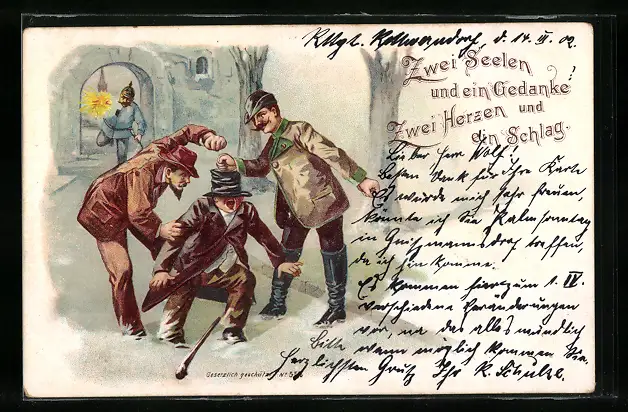 Rttgt. Kottwarndorf, d. 14. III. 02.
Zwei Seelen
und ein Gedanke!
Zwei Herzen und
ein Schlag.
Lieber Herr Wolf!
Besten Dank für Ihre Karte
Es würde mich sehr freuen,
könnte ich Sie Palmsonntag
in treffen,
da ich hin komme.
Es kommen hier zum 1. IV
verschiedene Veränderungen
vor, na das alles mündlich
Bitte wenn möglich kommen Sie.
Herzlichsten Gruß Ihr R. Schulze.
Gesetzlich geschützt Nr.